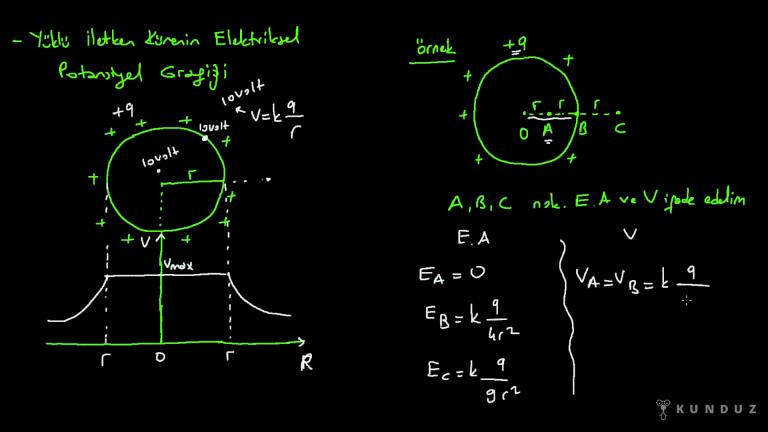 - Yüklü İletken Kürenin Elektriksel
Potansiyel Grafiği
+q
10volt
V=k q/r
10volt
10volt
r
+ + + + + + + + +
V
Vmax
r 0 r R
örnek
+q
+ + + + + +
r r r
O A B C
A, B, C nok. E.A ve V ifade edelim
E.A
V
E_A = 0
V_A = V_B = k q/
E_B = k q/4r²
E_C = k q/9r²
KUNDUZ